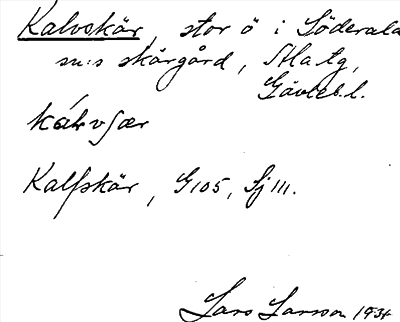 Kalvskär, stor ö i Söderala
sn:s skärgård, Ala tg,
Gävleb.l.
kálvʃær
Kalfskär, G105, Sj 111.
Lars Larsson 1934